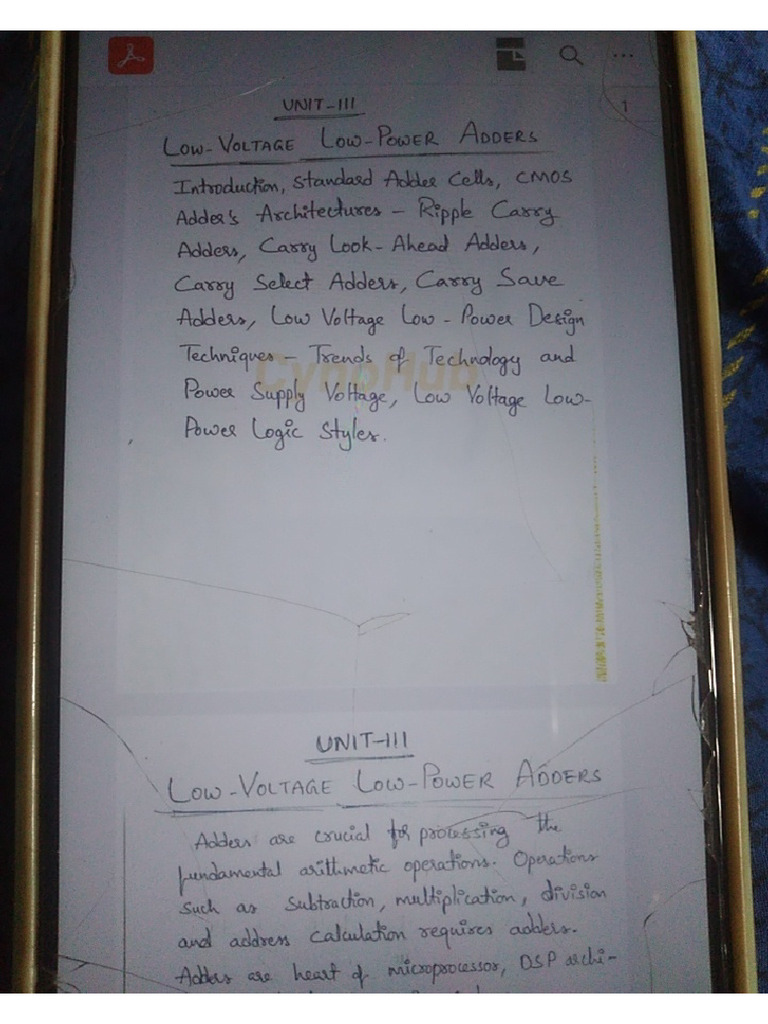 1
UNIT-III
LOW-VOLTAGE LOW-POWER ADDERS
Introduction, Standard Adder Cells, CMOS
Adder's Architectures - Ripple Carry
Adders, Carry Look-Ahead Adders,
Carry Select Adders, Carry Save
Adders, Low Voltage Low-Power Design
Techniques - Trends of Technology and
Power Supply Voltage, Low Voltage Low-
Power Logic Styles.
CynoHub
UNIT-III
LOW-VOLTAGE LOW-POWER ADDERS
Adders are crucial for processing the
fundamental arithmetic operations. Operations
such as subtraction, multiplication, division
and address calculation requires adders.
Adders are heart of microprocessor, DSP archi-